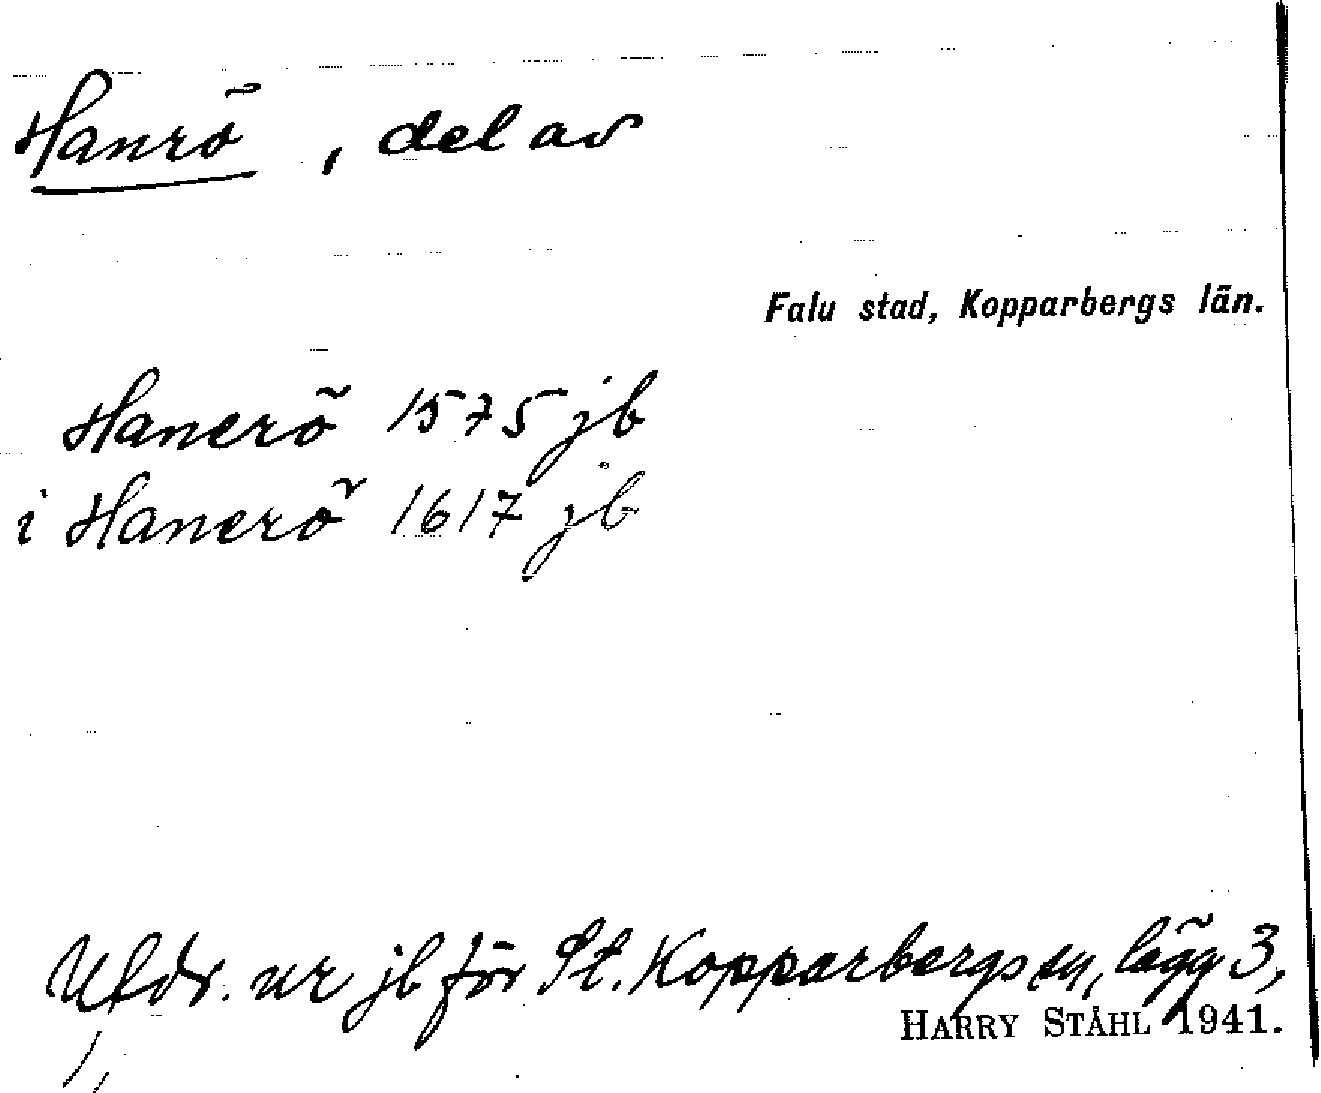 Hanrö, del av
Falu stad, Kopparbergs län.
Hanerö 1575 jb
i Hanerö 1617 jb
Utdr. ur jb för St. Kopparbergs sn, lägg 3,
HARRY STÅHL 1941.
1,